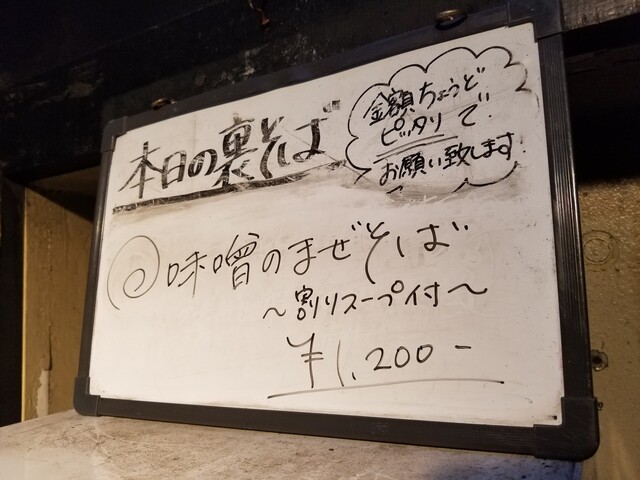 本日の裏そば
金額ちょうど
ピッタリで
お願い致します
味噌のまぜそば
〜割りスープ付〜
¥1,200-